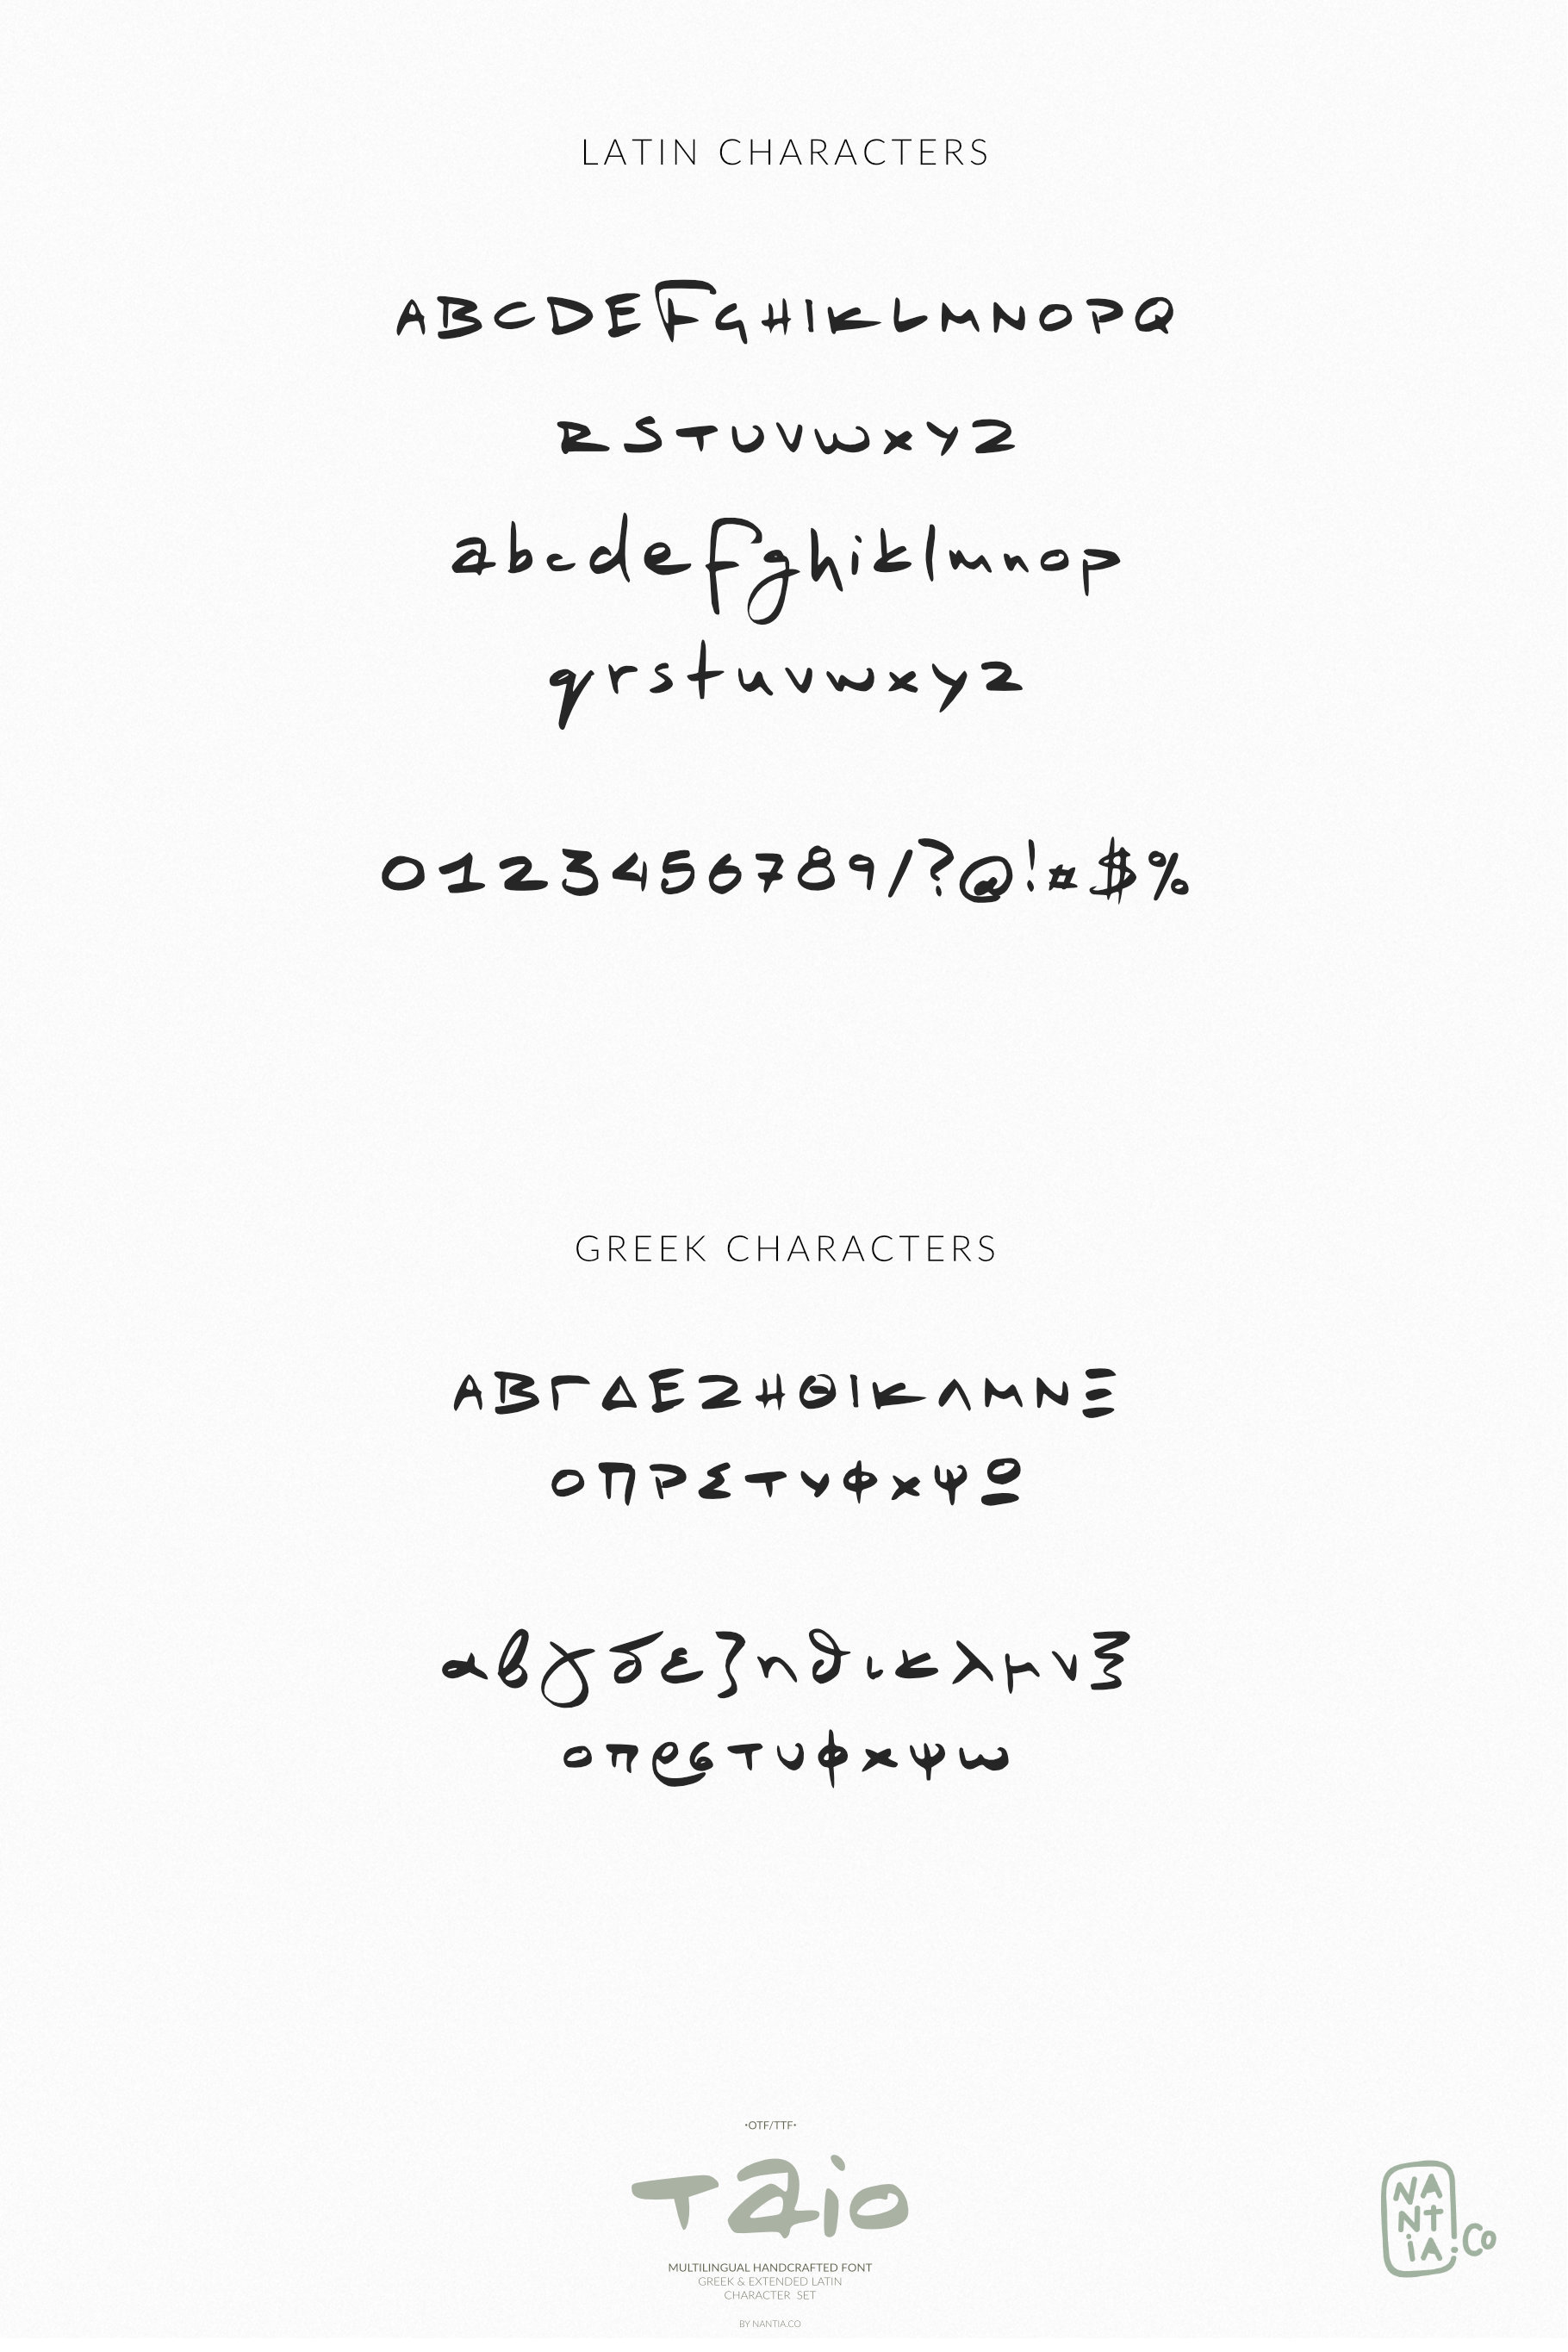 LATIN CHARACTERS
ABCDEFGHIKLMNOPQ
RSTUVWXYZ
abcdefghiklmnop
qrstuvwxyz
0123456789/?@!¤$%
GREEK CHARACTERS
ΑΒΓΔΕΖΗΘΙΚΛΜΝΞ
ΟΠΡΣΤΥΦΧΨΩ
αβγδεζηθικλμνξ
οπρστυφχψω
•OTF/TTF•
Taio
MULTILINGUAL HANDCRAFTED FONT
GREEK & EXTENDED LATIN
CHARACTER SET
BY NANTIA.CO
NA
Nt
iA.Co